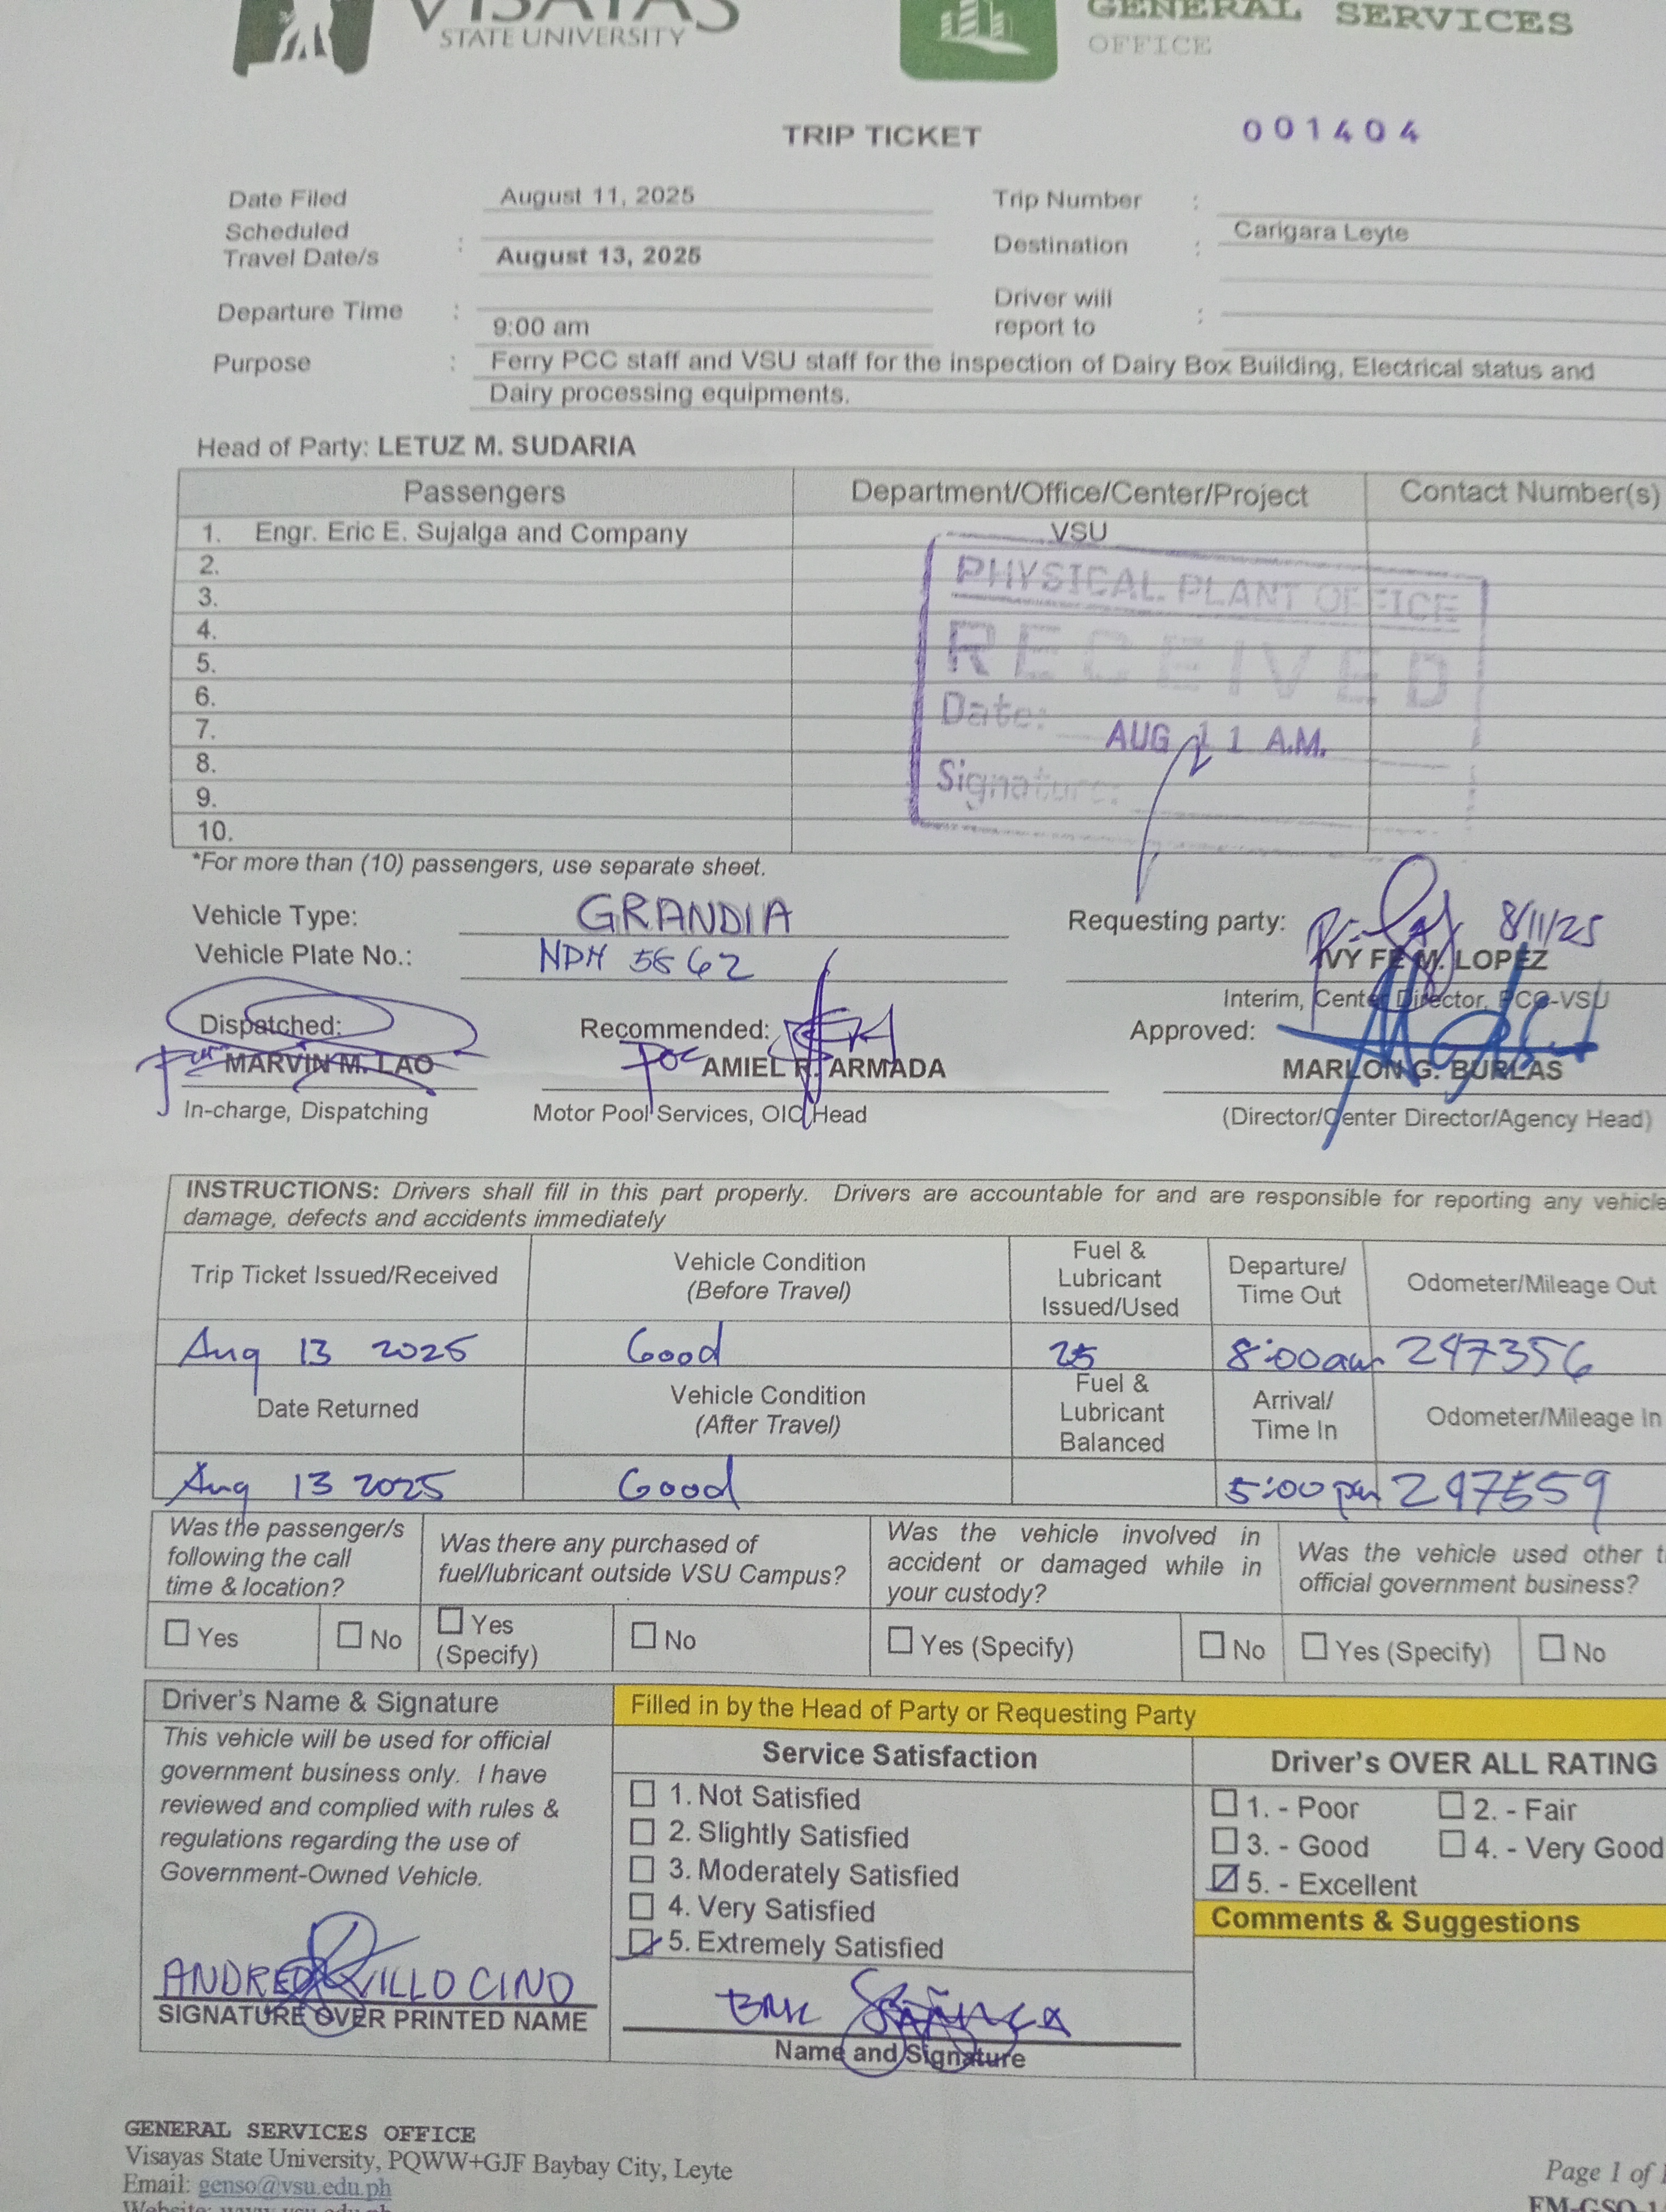 VISAYAS
STATE UNIVERSITY
GENERAL SERVICES
OFFICE
TRIP TICKET
001404
Date Filed August 11, 2025 Trip Number :
Scheduled
Travel Date/s : August 13, 2025 Destination : Carigara Leyte
Departure Time : 9:00 am Driver will
report to :
Purpose : Ferry PCC staff and VSU staff for the inspection of Dairy Box Building, Electrical status and
Dairy processing equipments.
Head of Party: LETUZ M. SUDARIA
Passengers Department/Office/Center/Project Contact Number(s)
1. Engr. Eric E. Sujalga and Company VSU
2.
3.
4.
5.
6.
7.
8.
9.
10.
PHYSICAL PLANT OFFICE
RECEIVED
Date: AUG 11 A.M.
Signature:
*For more than (10) passengers, use separate sheet.
Vehicle Type: GRANDIA Requesting party: 8/11/25
Vehicle Plate No.: IVY FE M. LOPEZ
Interim, Center Director, PCC-VSU
Dispatched: Recommended: Approved:
MARVIN M. LAO AMIEL R. ARMADA MARLON G. BURLAS
In-charge, Dispatching Motor Pool Services, OIC Head (Director/Center Director/Agency Head)
INSTRUCTIONS: Drivers shall fill in this part properly. Drivers are accountable for and are responsible for reporting any vehicle
damage, defects and accidents immediately
Trip Ticket Issued/Received Vehicle Condition
(Before Travel) Fuel &
Lubricant
Issued/Used Departure/
Time Out Odometer/Mileage Out
Aug 13 2025 Good 25 8:00am 247356
Date Returned Vehicle Condition
(After Travel) Fuel &
Lubricant
Balanced Arrival/
Time In Odometer/Mileage In
Aug 13 2025 Good 5:00 pm 247559
Was the passenger/s
following the call
time & location?
Was there any purchased of
fuel/lubricant outside VSU Campus?
Was the vehicle involved in
accident or damaged while in
your custody?
Was the vehicle used other
official government business?
Yes No Yes
(Specify) No Yes (Specify) No Yes (Specify) No
Driver's Name & Signature
This vehicle will be used for official
government business only. I have
reviewed and complied with rules &
regulations regarding the use of
Government-Owned Vehicle.
ANDREO VILLOCINO
SIGNATURE OVER PRINTED NAME
Filled in by the Head of Party or Requesting Party
Service Satisfaction
1. Not Satisfied
2. Slightly Satisfied
3. Moderately Satisfied
4. Very Satisfied
5. Extremely Satisfied
Name and Signature
Driver's OVER ALL RATING
1. - Poor 2. - Fair
3. - Good 4. - Very Good
5. - Excellent
Comments & Suggestions
GENERAL SERVICES OFFICE
Visayas State University, PQWW+GJF Baybay City, Leyte
Email: genso@vsu.edu.ph
Page 1 of